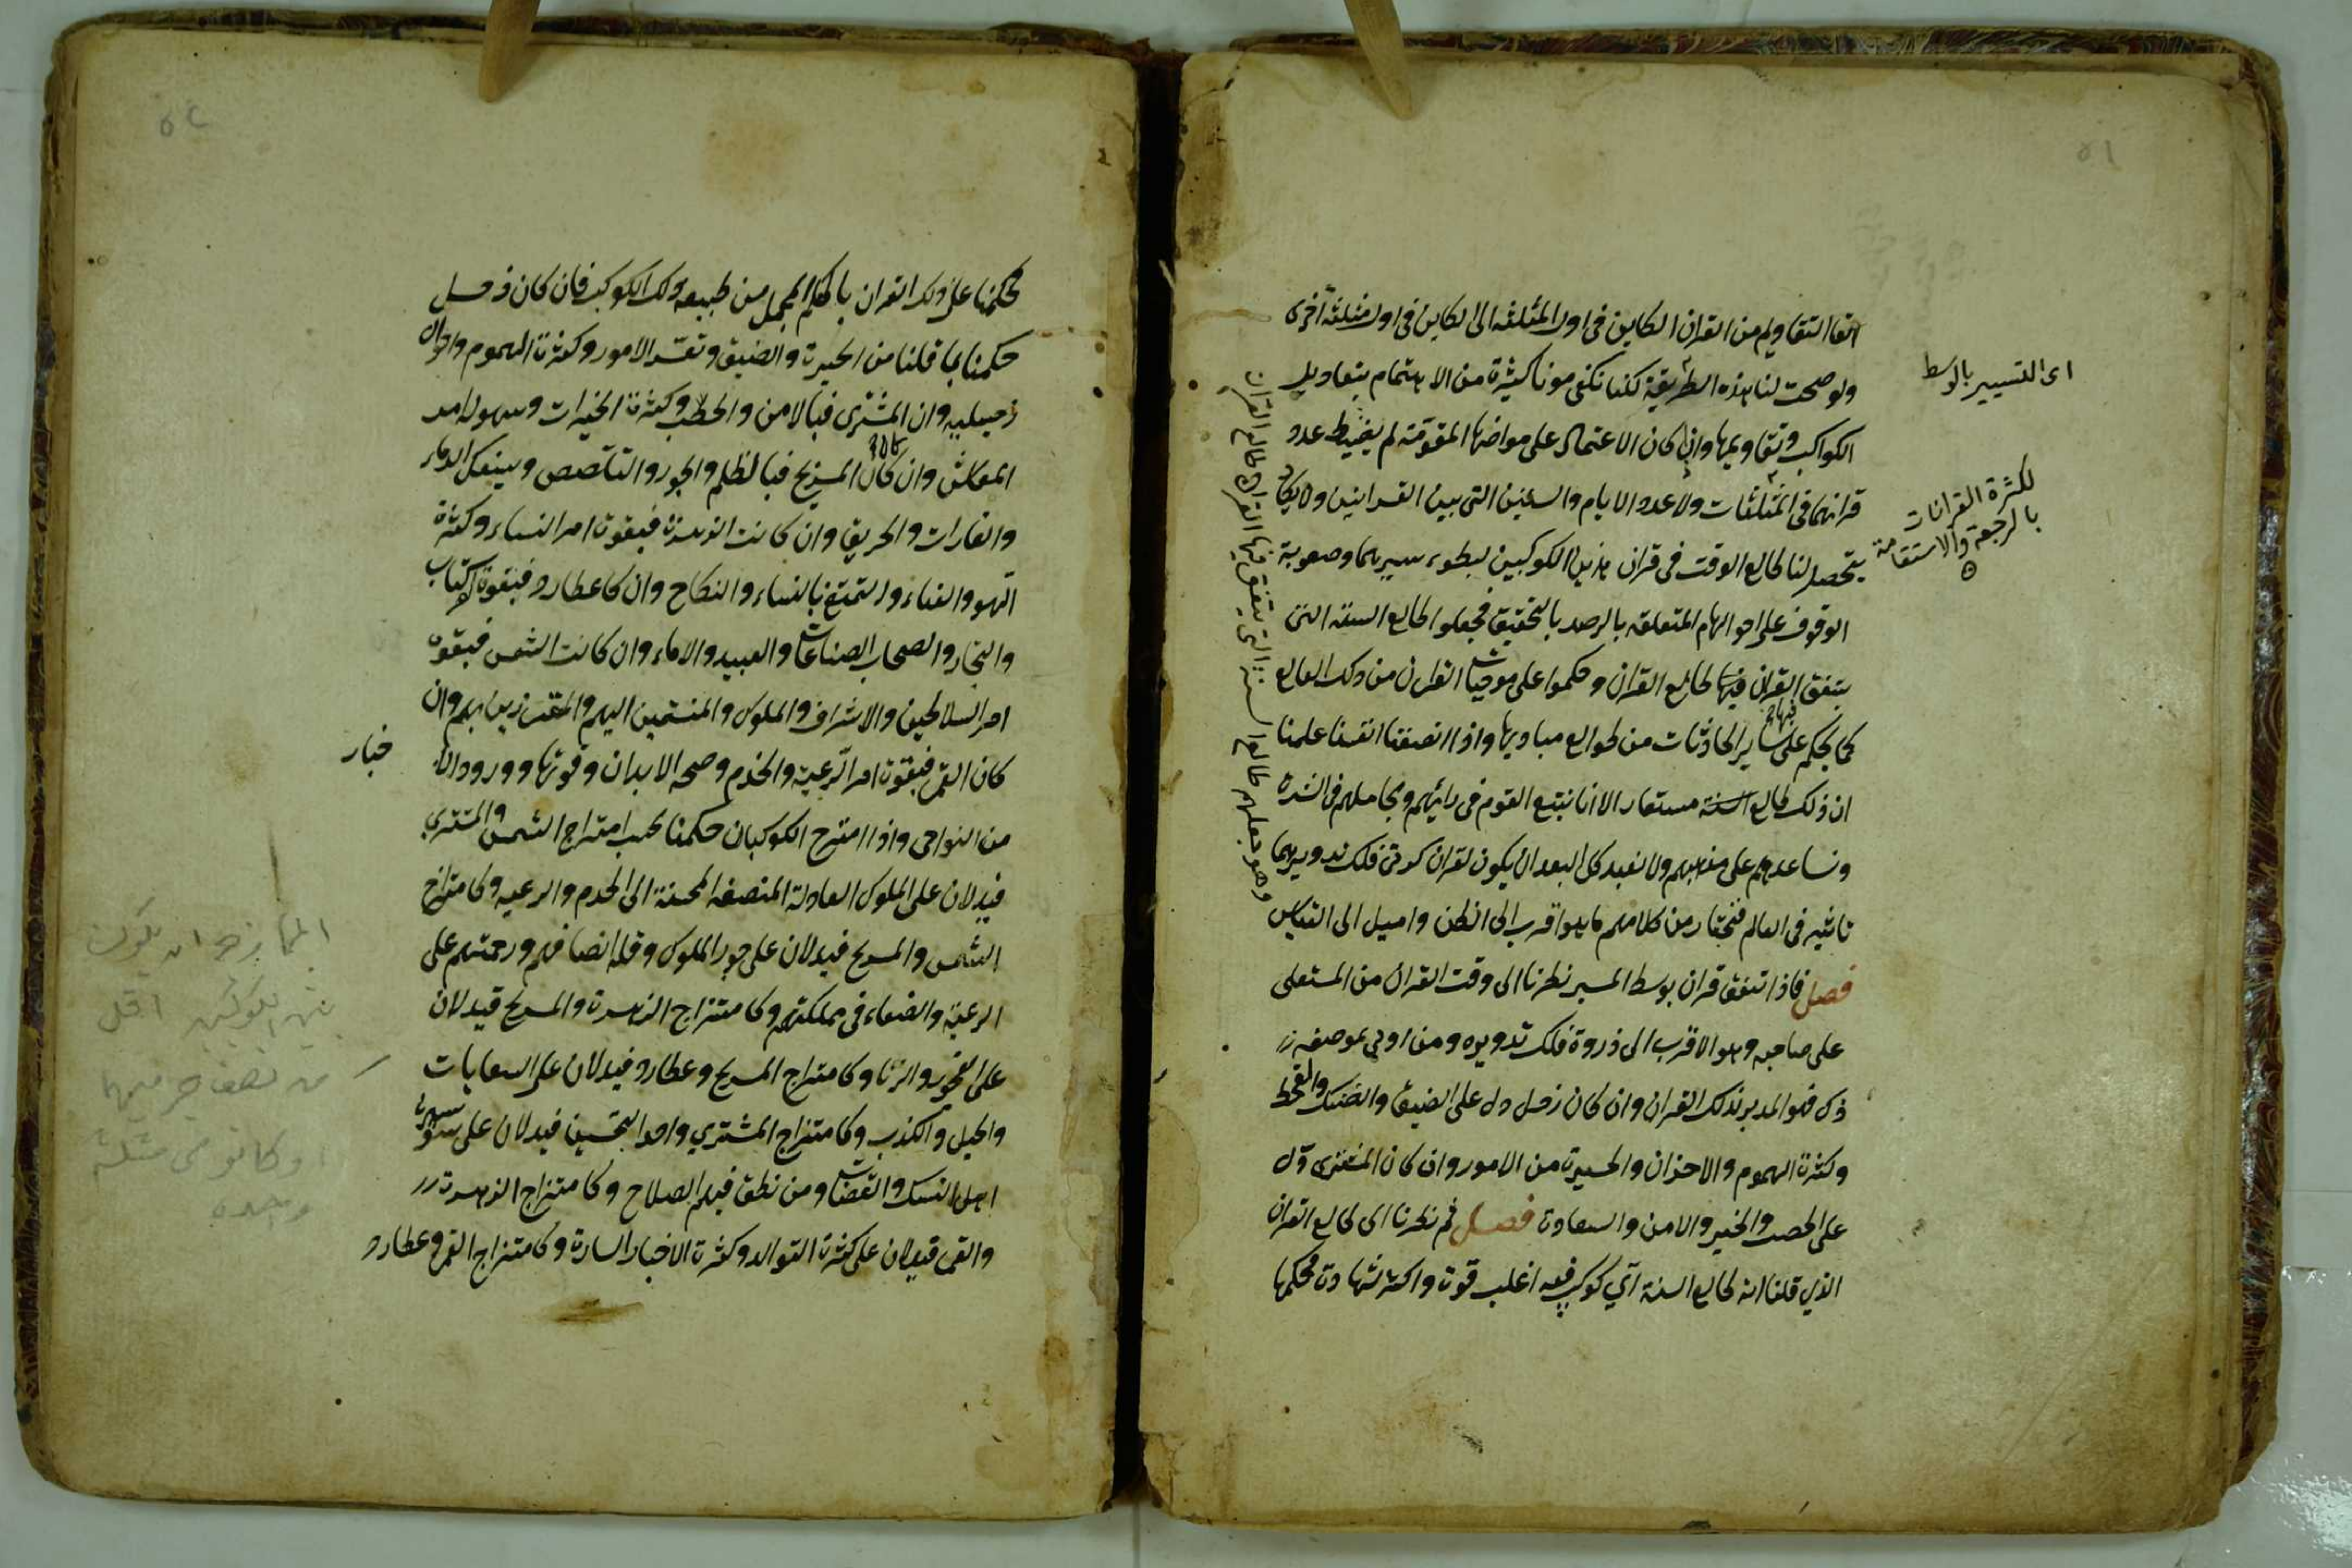 ٥١
اتقا التقاويم من القران الكاين فى اول المثلثه الى الكاين فى اول مثلثة أخرى
ولو صحت لنا هذه الطريقة لكنا نكفى مونا كثيرة من الاهتمام بتعاديل
الكواكب وتقاويمها وان كان الاعتماد على مواضعها المقومة لم ينضبط عدد
قرانهما فى المثلثات ولا عدد الايام والسنين التى بين القرانين ولا يكاد
يتحصل لنا طالع الوقت فى قران هذين الكوكبين لبطوء سيريهما وصعوبة
الوقوف على احوالهما المتعلقه بالرصد بالتحقيق فجعلوا طالع السنه التى
يتفق القران فيها طالع القران وحكموا على موجبات القران من ذلك الطالع
كما يحكم على ساير الحادثات من طوالع مباديها واذا انصفنا انفسنا علمنا
ان ذلك طالع السنة مستعار الا انا نتبع القوم فى رائهم ونجاملهم فى الشده
ونساعدهم على مذهبهم ولا نبعد كل البعد ان يكون لقران كوكبى فلك تدويريهما
تاثير فى العالم فنختار من كلامهم ما هو اقرب الى الظن واميل الى القياس
فصل فاذا اتفق قران بوسط المسير نظرنا الى وقت القران من المستعلى
على صاحبه وهو الاقرب الى ذروة فلك تدويره ومن اوجى بموضعه
ذلك فهو المدبر لذلك القران وان كان زحل دل على الضيق والضنك والقحط
وكثرة الهموم والاحزان والحيرة من الامور وان كان المشترى دل
على الخصب والخير والامن والسعادة فصل ثم نظرنا الى طالع القران
الذي قلنا انه طالع السنة آي كوكب فيه اغلب قوة واكثر شهادة فحكمها
اى التسيير بالوسط
لكثرة القرانات
بالرجعة والاستقامة
السنة التى يتفق فيها القران طالع القران
وهو جعلهم طالع
٥٢
فحكمنا على ذلك القران بالحكم المجمل من طبيعه ذلك الكوكب فان كان زحل
حكمنا بما قلنا من الحيرة والضيق وتعسّر الامور وكثرة الهموم واحوال
زحيليه وان المشترى فبالامن والخطب وكثرة الخيرات وسهوله امر
المعاش وان كان المريخ فبالظلم والجور والتلصص وسفك الدماء
والغارات والحريق وان كانت الزهرة فبقوة امر النساء وكثرة
اللهو والغناء والتمتع بالنساء والنكاح وان كا عطارد فبقوة الكتاب
والتجار واصحاب الصناعات والعبيد والاماء وان كانت الشمس فبقوة
امر السلاطين والاشراف والملوك والمنتمين اليهم والمتعززين بهم وان
كان القمر فبقوة امر الرعية والخدم وصحه الابدان وقوتها وورود الا
خبار
من النواحى واذا امتزج الكوكبان حكمنا بحسب امتزاج الشمس والمشتري
فيدلان على الملوك العادلة المنصفه المحسنة الى الخدم والرعيه وكامتزاج
الشمس والمريخ فيدلان على جور الملوك وقله انصافهم ورحمتهم على
الرعية والضعفاء فى مملكتهم وكامتزاج الزهرة والمريخ فيدلان
على الفجور والزنا وكامتزاج المريخ وعطارد فيدلان على السعايات
والحيل والكذب وكامتزاج المشتري واحد النحسين فيدلان على سوء
اهل النسك والقضاة ومن نطق فيهم الصلاح وكامتزاج الزهرة
والقمر فيدلان على كثرة التوالد وكثرة الاخبار السارة وكامتزاج القمر وعطارد
الممازجة ان يكون
بين الكوكبين اقل
من نصف جرميهما
او كانو فى مثلثه
واحده